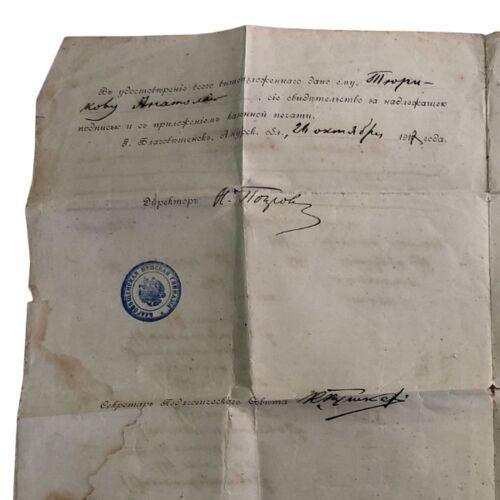 Въ удостовѣреніе всего вышеизложеннаго дано ему, Тюри-
кову Анатолію, сіе свидѣтельство за надлежащею
подписью и съ приложеніемъ казенной печати.
Г. Благовѣщенскъ, Амурск. обл., 24 октября 1917 года.
Директоръ
БЛАГОВѢЩЕНСКАЯ МУЖСКАЯ ГИМНАЗІЯ
Секретарь Педагогическаго Совѣта